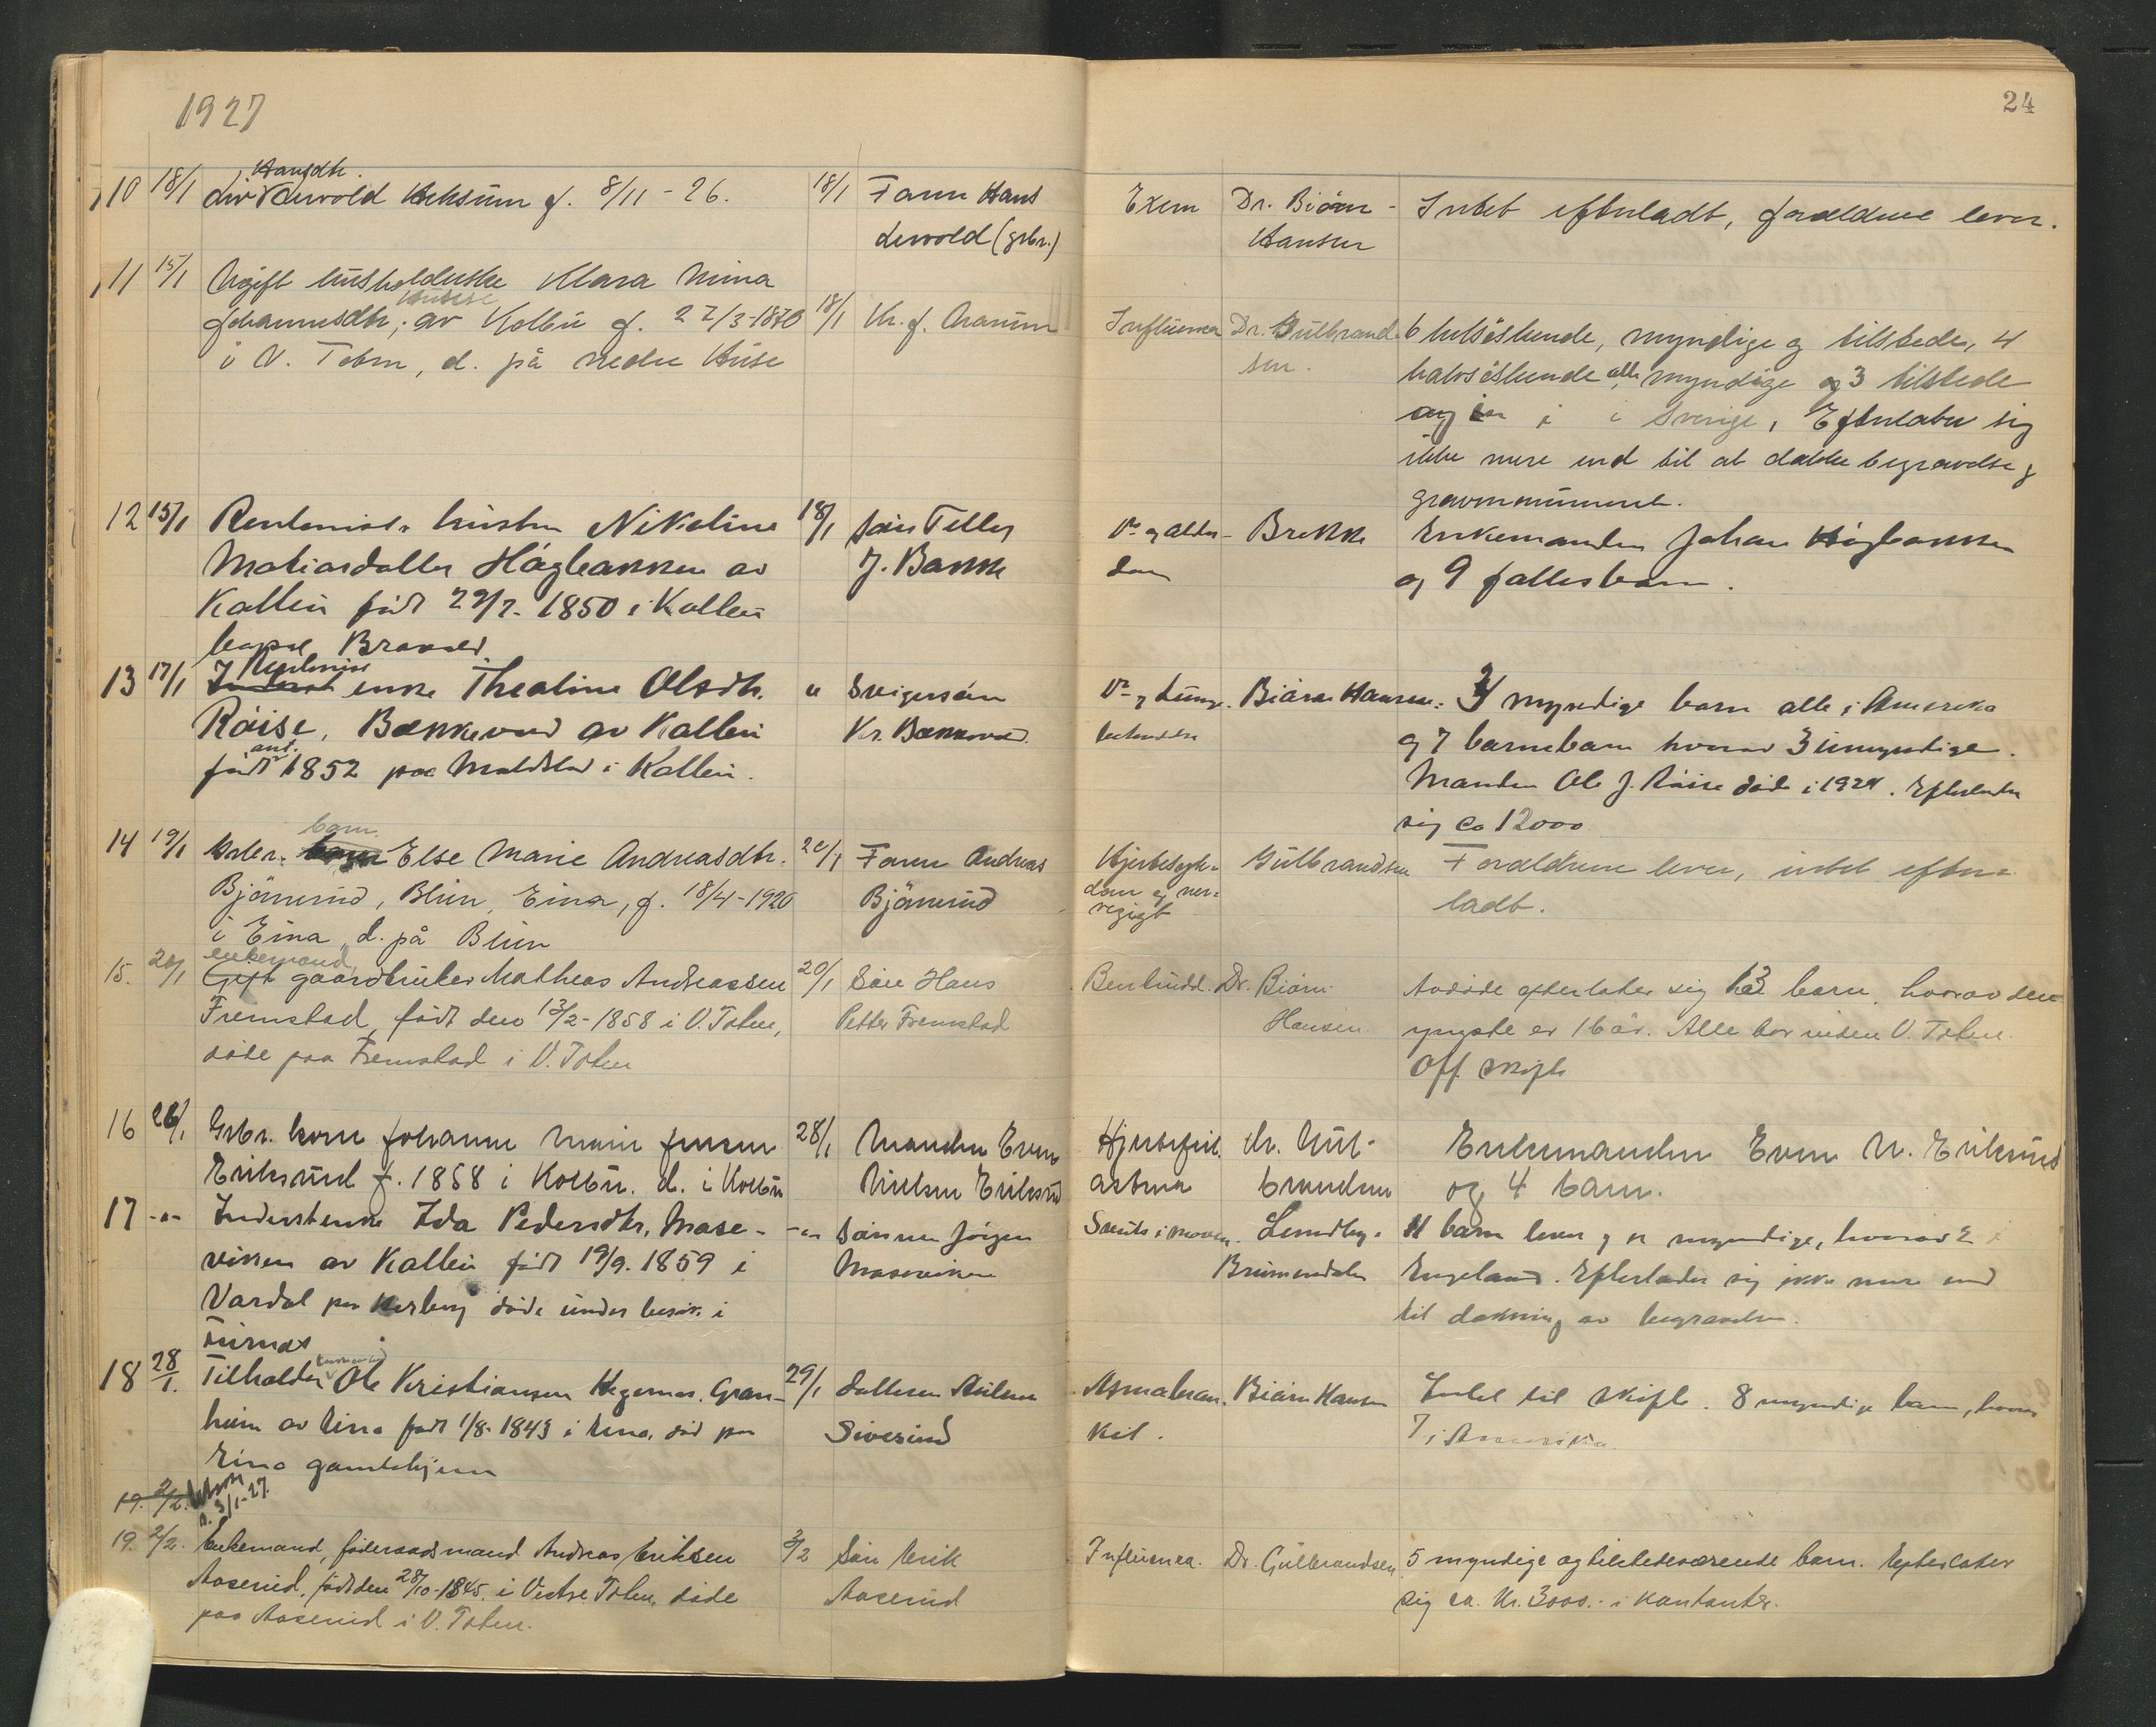 1927
24
10 18/1 Liv Lervold f. 8/11 - 26. 18/1 Faren Hans Exem Dr. Biørn- Intet efterladt, forældrene lever.
Hansdtr.
Lervold (grbr.) Hansen
11 15/1 Ugift husholderske Klara Mina
Huse
Johannesdtr, av Kolbu f. 27/3-1870 18/1 Kr. J. Influensa Dr. Gulbrand- 6 helsøskende, myndige og tilstede, 4
i V. Toten, d. på nedre Huse sen. halvsøskende alle myndige og 3 tilstede
og en i Sverige, Efterlater sig
ikke mere end til at dække begravelse og
gravmonument.
12 15/1 Rentenist. hustru Nikoline 18/1 søn Fellex Brekke Enkemanden Johan Høgbakken
Matiasdatter Høgbakken av J. Bakke dom og 9 fællesbarn.
Kolbu født 29/7-1850 i Kolbu
13 17/1 Inderst enke Theoline Olsdtr. " Svigersøn V- og lunge- Biørn Hansen. 4 myndige barn alle i Amerika
Røise, Bækkevold av Kolbu Kr. Bækkevold. betendelse og 7 barnebarn hvorav 3 umyndige.
ant.
født 1852 paa i Kolbu. Manden Ole J. Røise døde i 1924. Efterlader
sig ca 12000
14 19/1 Grbr. barn Else Marie Andreasdtr. 20/1 Faren Andreas Hjertesyk- Gulbrandsen Forældrene lever, intet efter-
Bjørnerud, Blien, Eina, f. 18/4-1920 Bjørnerud dom og ner- ladt.
i Eina, d. på Blien vegigt
enkemand
15. 20/1 Gift gaardbruker Matheas Andreassen 20/1 Søn Hans Benbrudd. Dr. Biørn Avdøde efterlater sig 13 barn, hvorav den
Fremstad, født den 13/2-1858 i V. Toten, Petter Fremstad Hansen yngste er 16 år. Alle bor inden V. Toten.
døde paa Fremstad i V. Toten Off. skifte
16 26/1 Grbr. kone Johanne Marie Jensen 28/1 Manden Even Hjertefeil. dr. Gul- Enkemanden Even N. Eriksrud
Eriksrud f. 1858 i Kolbu. d. i Kolbu Nielsen Eriksrud astma brandsen og 4 barn.
17 -"- Inderstenke Ida Pedersdtr. Mase- -"- Sønnen Jørgen Lundby- 11 barn lever og er myndige, hvorav 2 i
viken av Kolbu født 19/9. 1859 i Maseviken Brumunddalen England. Efterlader sig ikke mere end
Vardal paa døde under besøk i til dækning av begravelsen.
Furnes
18 28/1. Tilholder Ole Kristiansen Hegernes. Gran- 29/1 Astmabron- Biørn Hansen Intet til skifte. 8 myndige barn, hvorav
heim av Eina født 1/8-1843 i Eina, død paa Sivesind kit. 7 i Amerika
Eina gamlehjem
19. 2/2. 3/1-27.
19. 2/2. Enkemand, føderaadsmand Andreas Eriksen 3/2 Søn Erik Influensa. Dr. Gulbrandsen 5 myndige og tilstedeværende barn. Efterlater
Aaserud, født den 28/10-1845. i Vestre Toten, døde Aaserud sig ca. Kr. 3000.- i kontanter.
paa Aaserud i V. Toten.